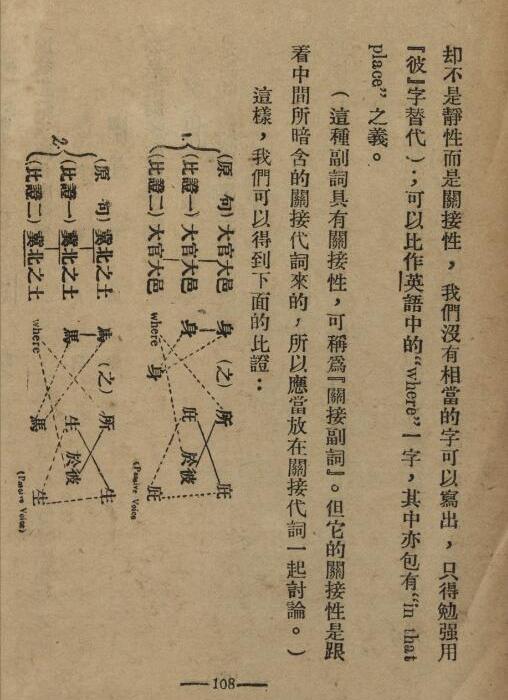 却不是靜性而是關接性，我們沒有相當的字可以寫出，只得勉强用
『彼』字替代）；可以比作英語中的“where”一字，其中亦包有“in that
place”之義。
（這種副詞具有關接性，可稱爲『關接副詞』。但它的關接性是跟
着中間所暗含的關接代詞來的，所以應當放在關接代詞一起討論。）
這樣，我們可以得到下面的比證：
1.
（原　句）大官大邑　身（之）所　庇
（比證一）大官大邑　身　庇　於彼
（比證二）大官大邑　where　身　庇
(Passive Voice
2.
（原　句）冀北之土　馬（之）所　生
（比證一）冀北之土　馬　生　於彼
（比證二）冀北之土　where　馬　生
(Passive Voice)
—108—